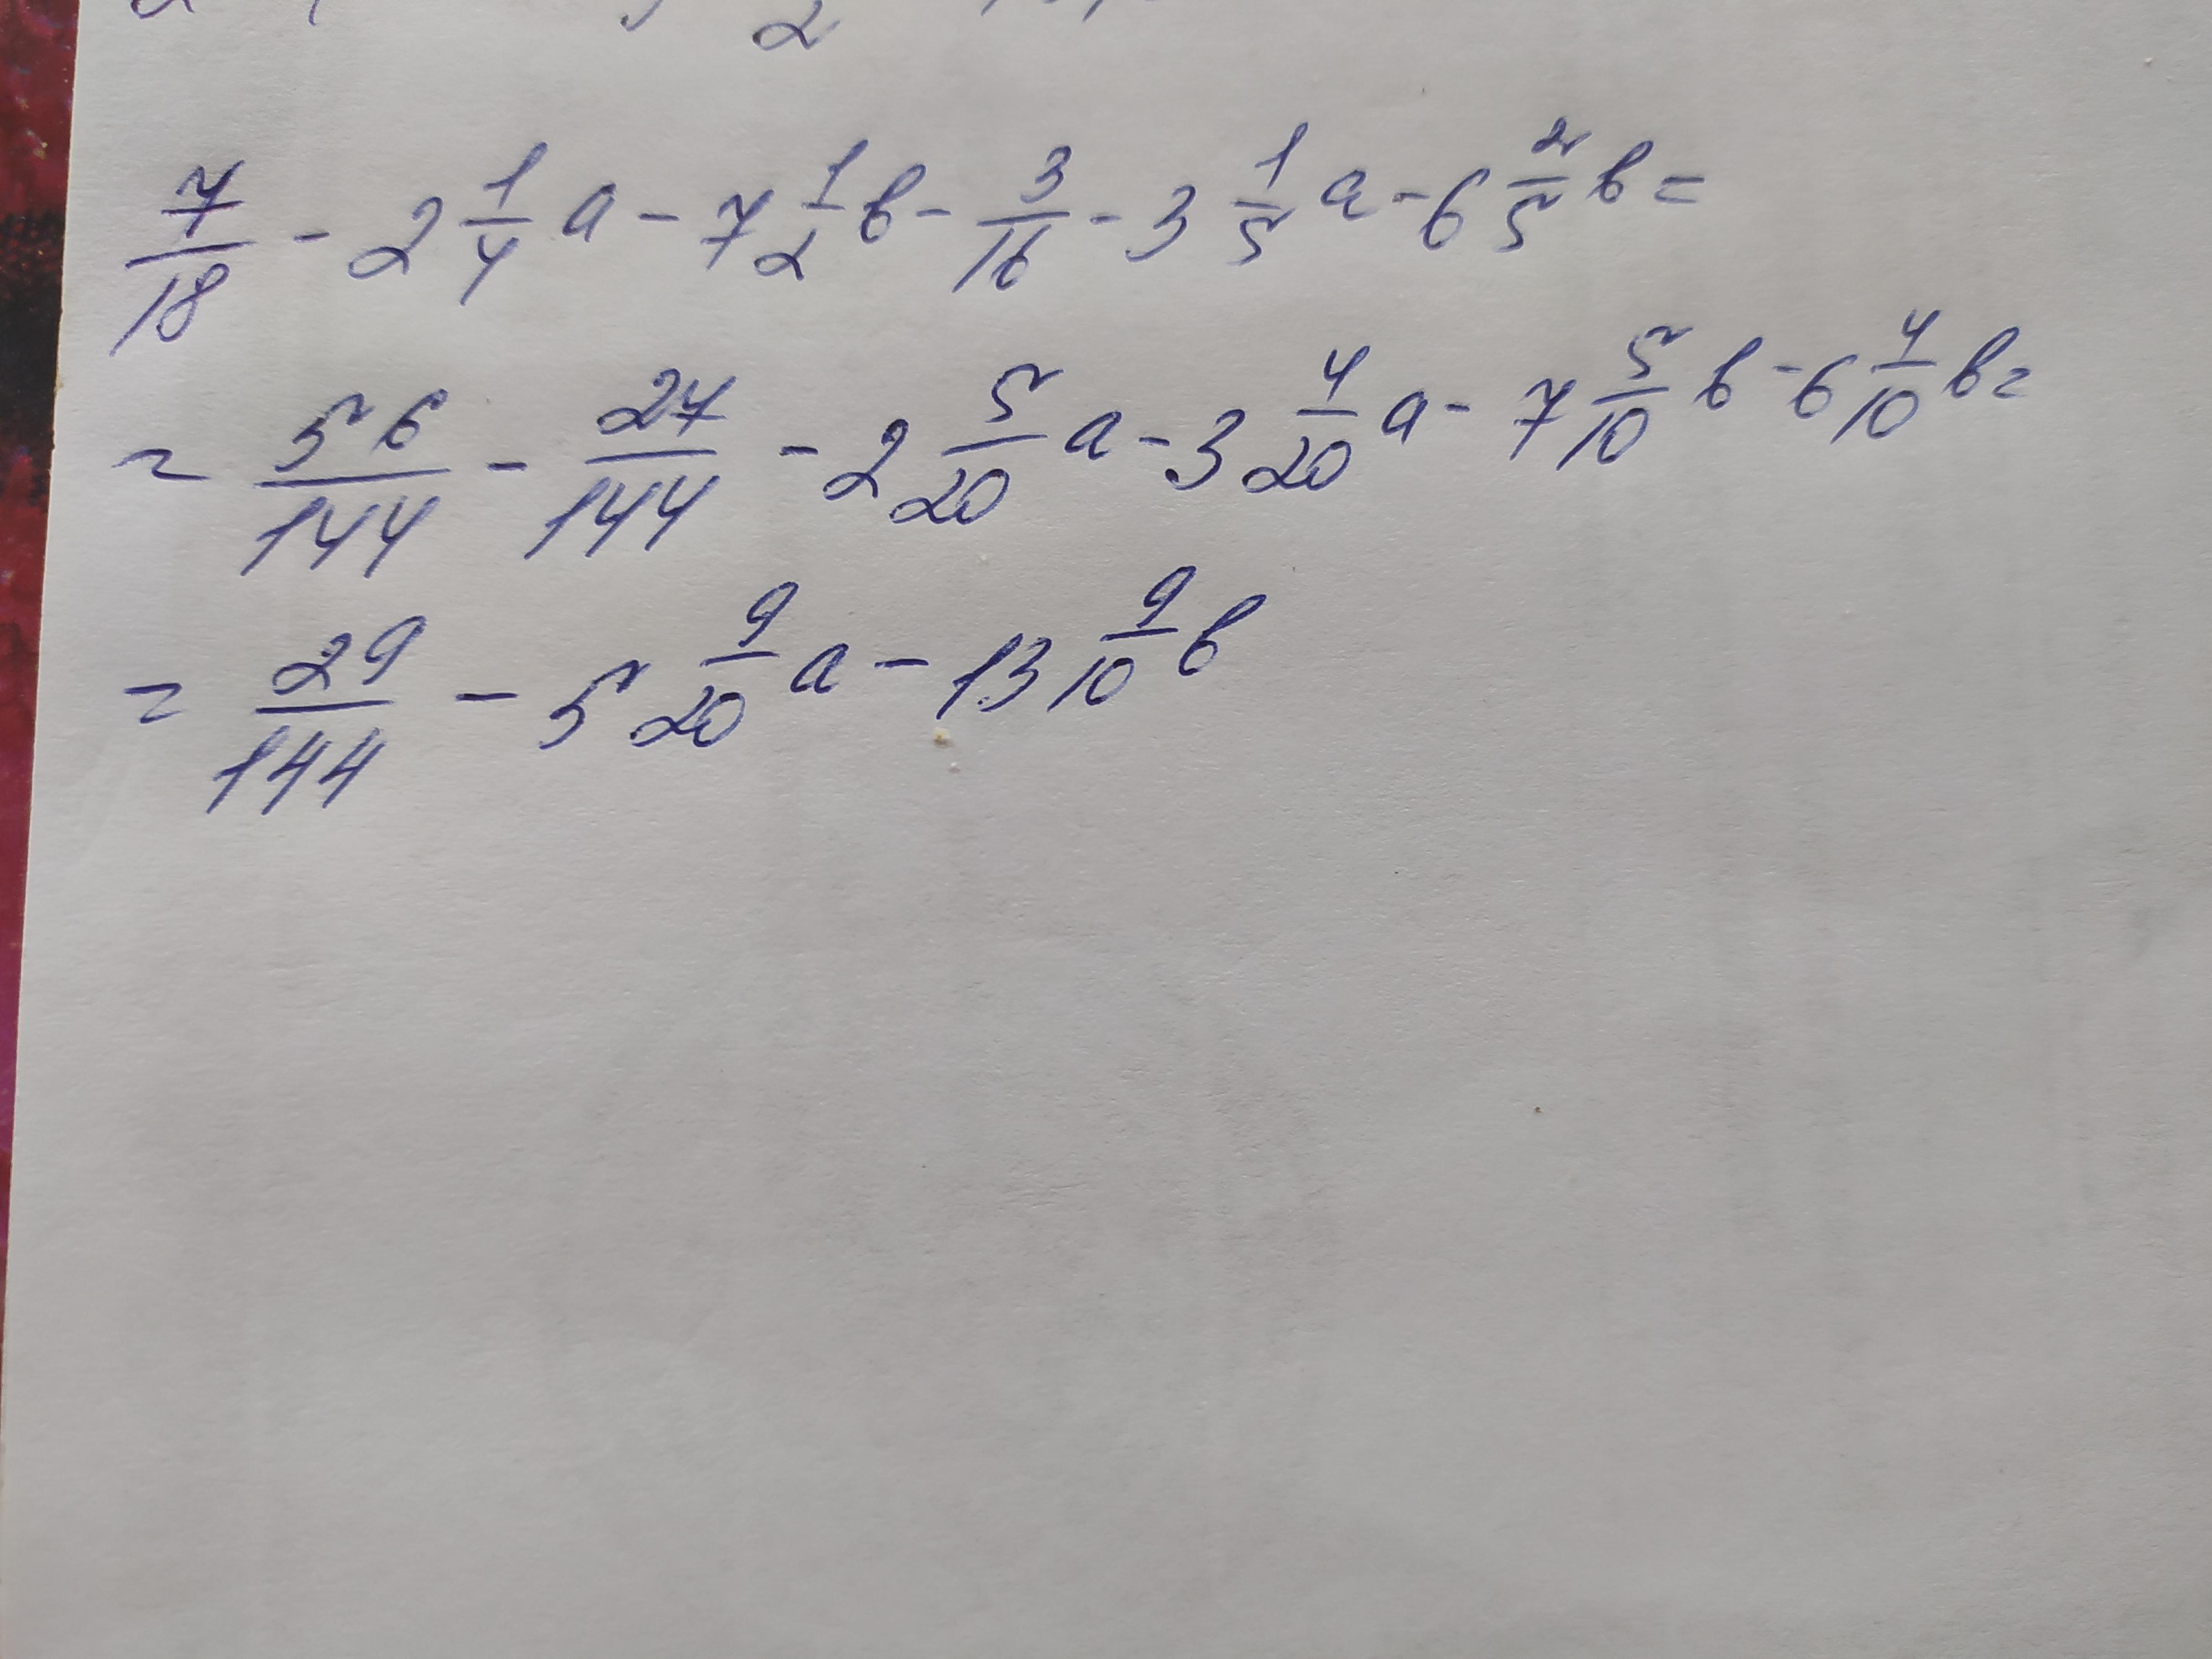 2
7/18 - 2 1/4 a - 7 1/2 b - 3/16 - 3 1/5 a - 6 2/5 b =
= 56/144 - 27/144 - 2 5/20 a - 3 4/20 a - 7 5/10 b - 6 4/10 b =
= 29/144 - 5 9/20 a - 13 9/10 b